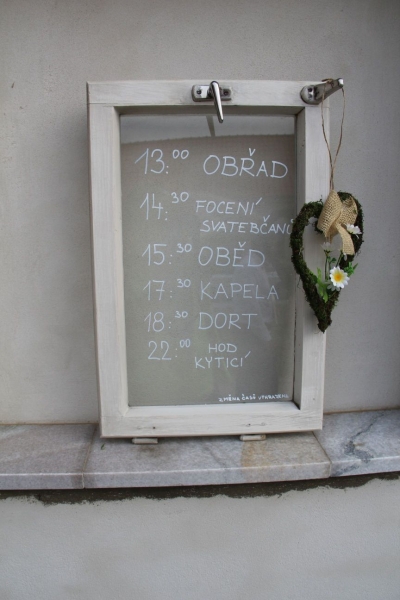 13:00 OBŘAD
14:30 FOCENÍ
SVATEBČANŮ
15:30 OBĚD
17:30 KAPELA
18:30 DORT
22:00 HOD
KYTICÍ
ZMĚNA ČASŮ VYHRAZENA